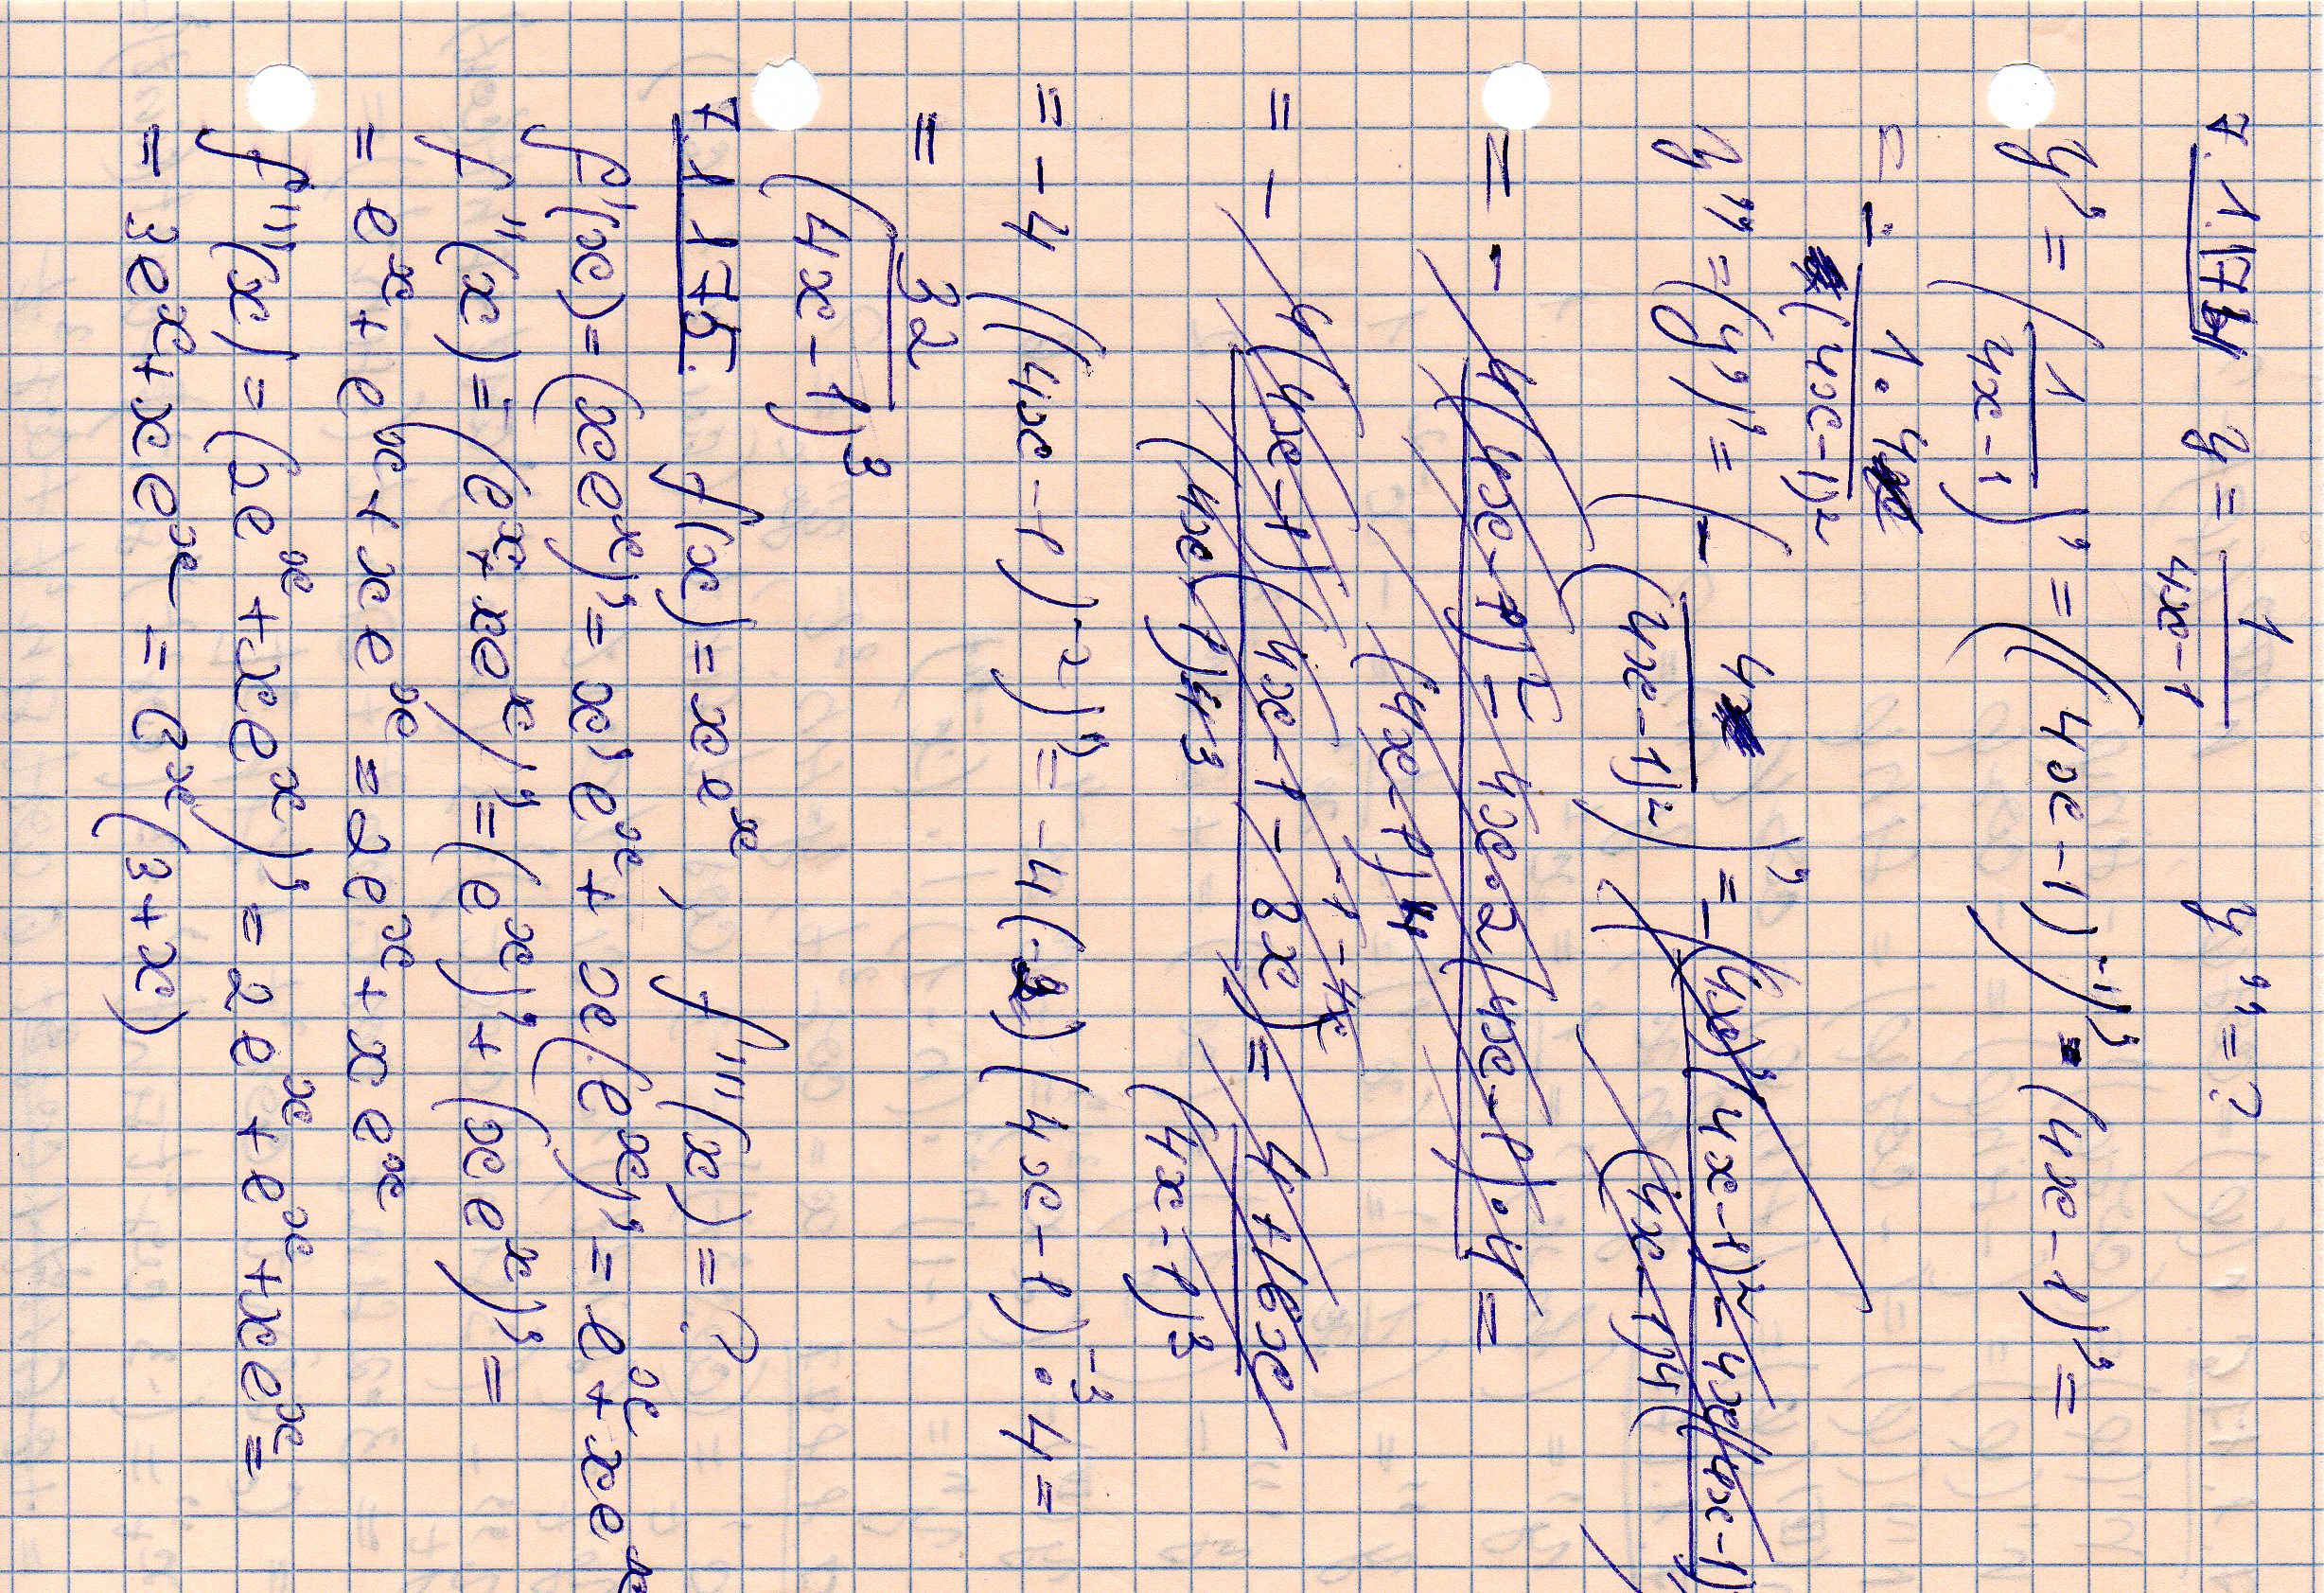 7.1.174 y = 1/(4x-1) y'' = ?
y' = (1/(4x-1))' = ((4x-1)^-1)' · (4x-1)' =
= - 1·4/(4x-1)^2
y'' = (y')' = (- 4/(4x-1)^2)' = -((4x)'(4x-1)^2 - 4x((4x-1)/(4x-1)^4
= - (4(4x-1)^2 - 4x·2(4x-1)·4)/(4x-1)^4 =
= - 4(4x-1)(4x-1-8x)/(4x-1)^4 3 -1-4x = (4+16x)/(4x-1)^3
= -4((4x-1)^-2)' = -4(-2)(4x-1)^-3 · 4 =
= 32/(4x-1)^3
7.1.175. f(x) = xe^x, f'''(x) = ?
f'(x) = (xe^x)' = x'e^x + x(e^x)' = e^x + xe^x
f''(x) = (e^x + xe^x)' = (e^x)' + (xe^x)' =
= e^x + e^x + xe^x = 2e^x + xe^x
f'''(x) = (2e^x + xe^x)' = 2e^x + e^x + xe^x =
= 3e^x + xe^x = e^x(3+x)